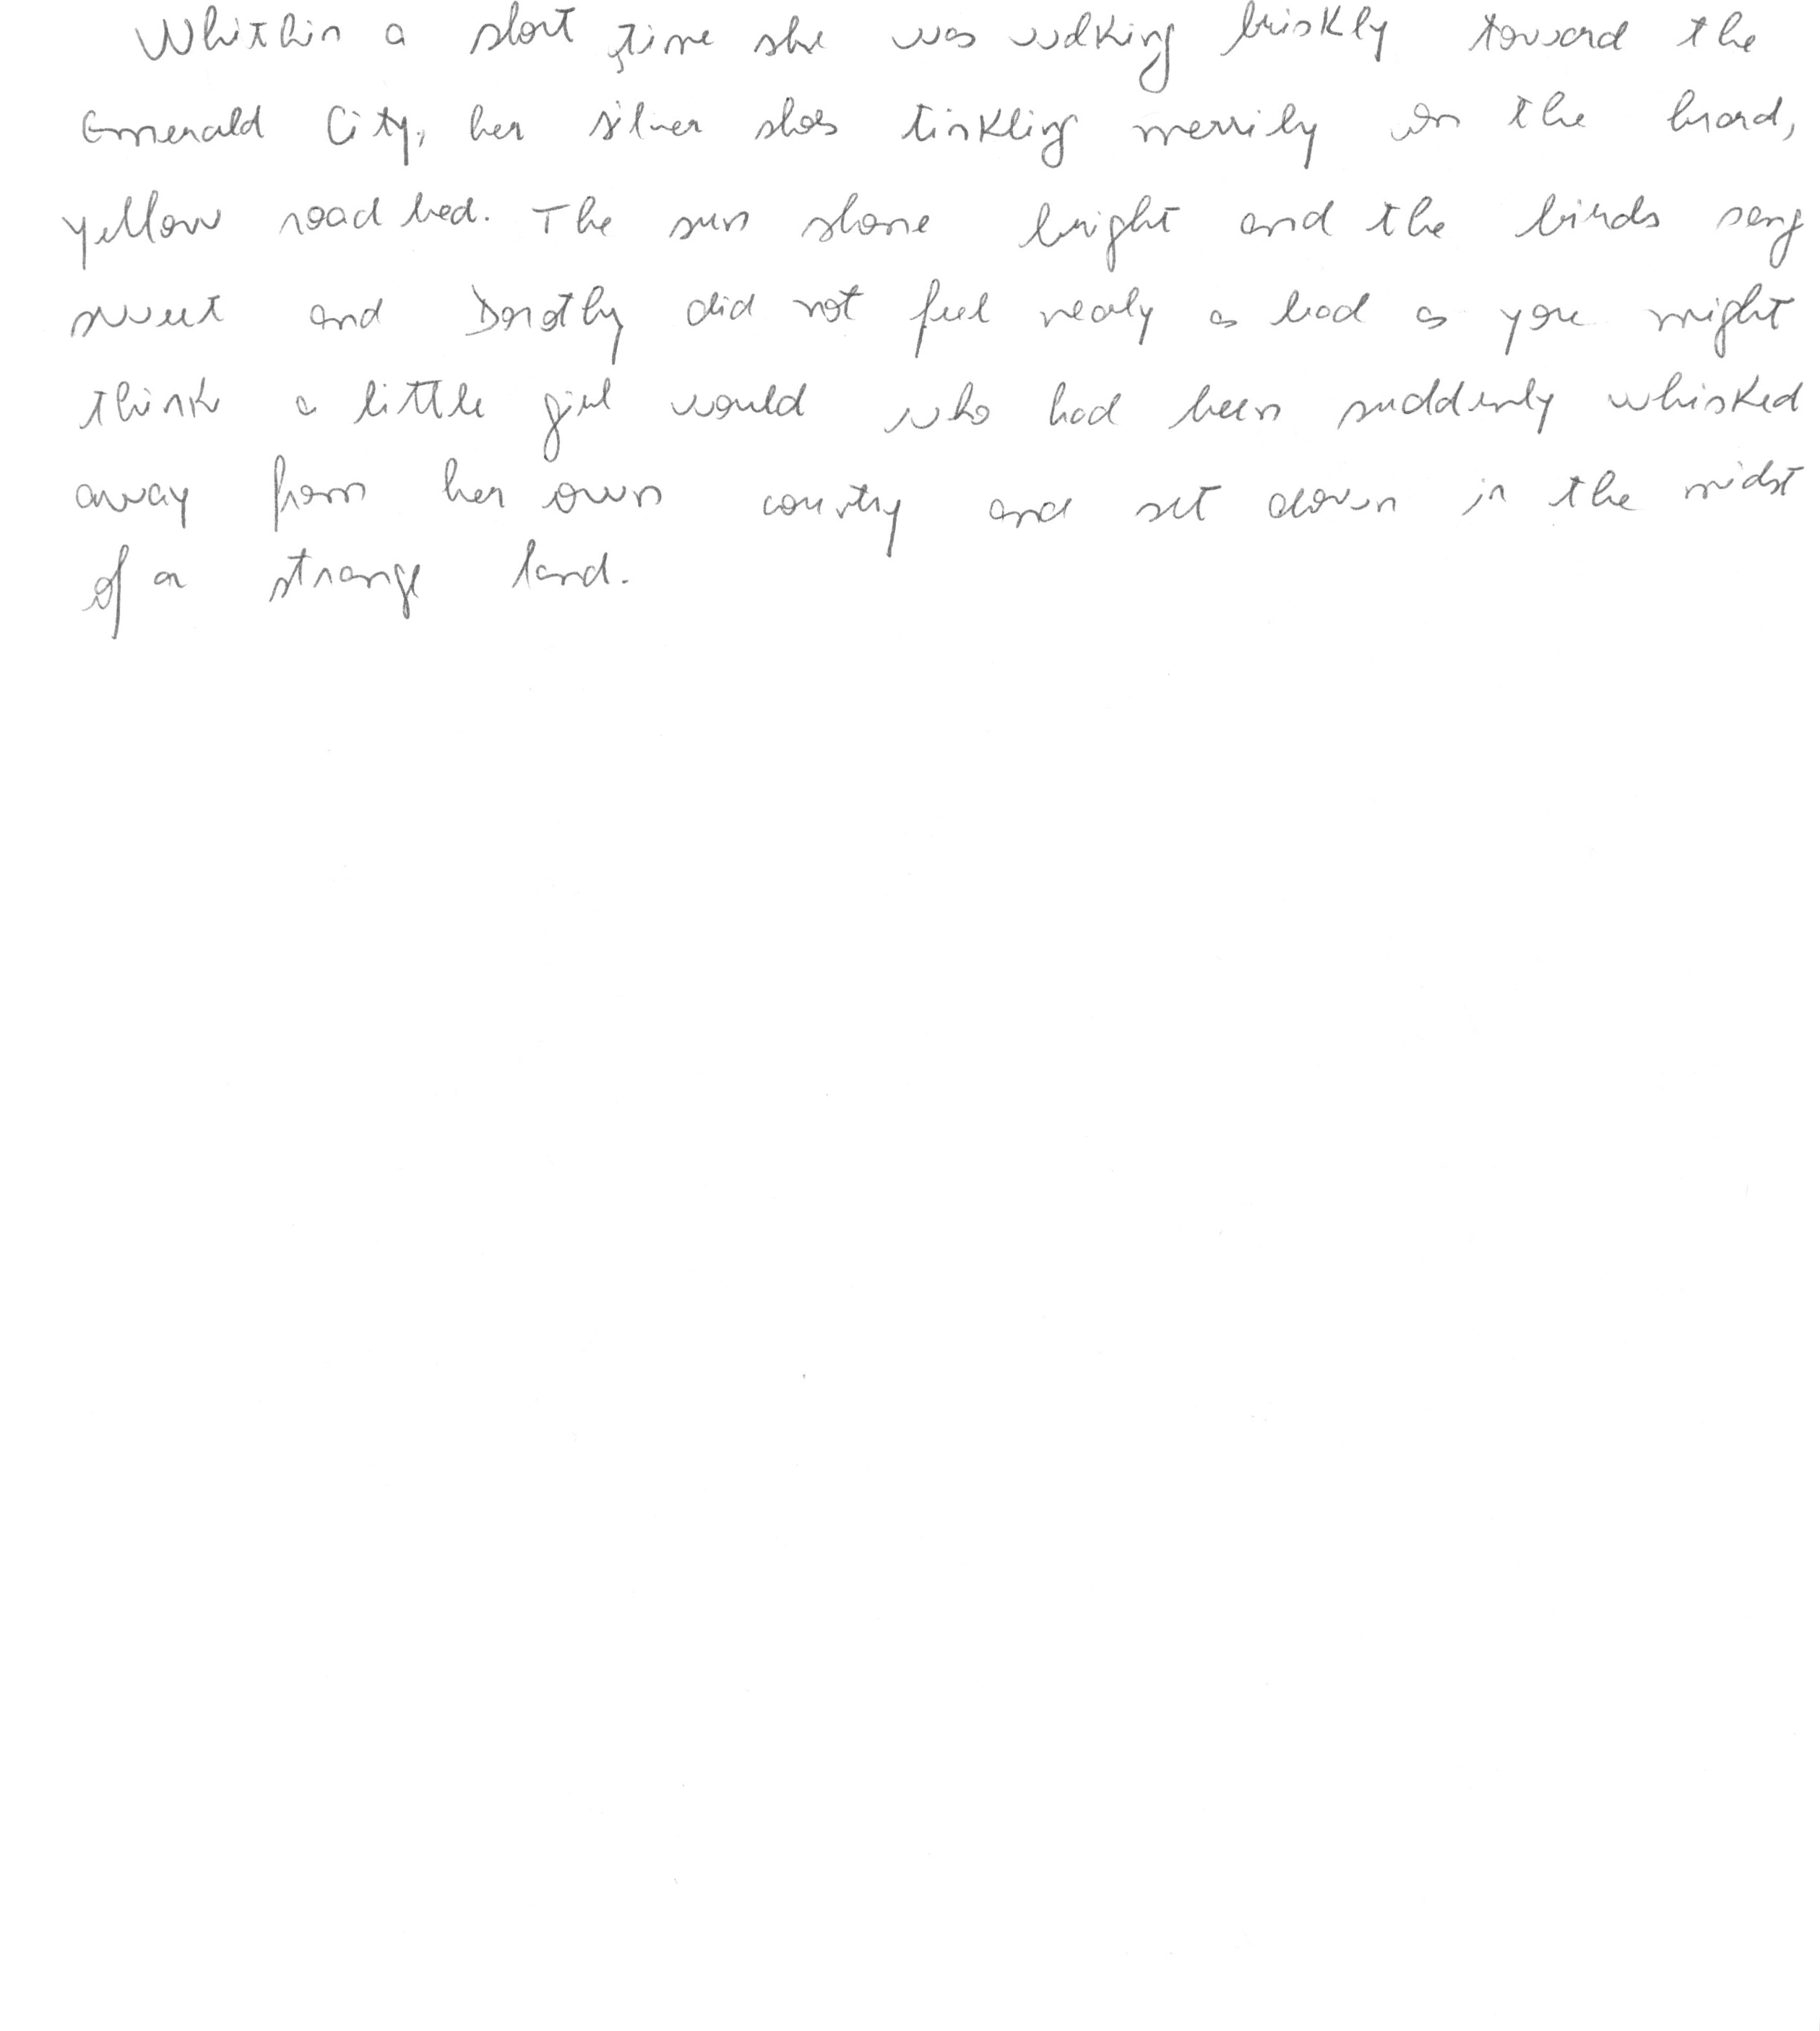 Whithin a short time she was walking briskly toward the
Emerald City, her silver shoes tinkling merrily on the hard,
yellow road bed. The sun shone bright and the birds sang
sweet and Dorothy did not feel nearly as bad as you might
think a little girl would who had been suddenly whisked
away from her own country and set down in the midst
of a strange land.